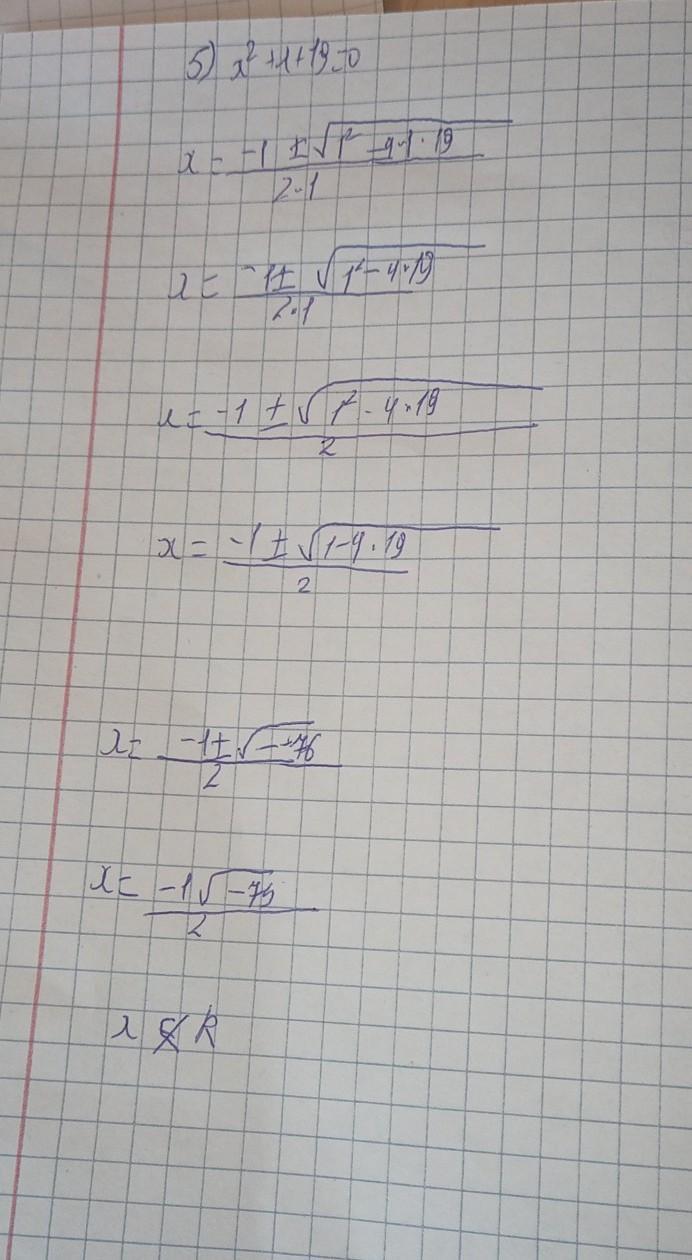 5) x² + x + 19 = 0
x = -1 ± √1² - 4·1·19 / 2·1
x = -1 ± √1² - 4·19 / 2·1
x = -1 ± √1² - 4·19 / 2
x = -1 ± √1 - 4·19 / 2
x = -1 ± √ - 76 / 2
x = -1 √-75 / 2
x ∉ R